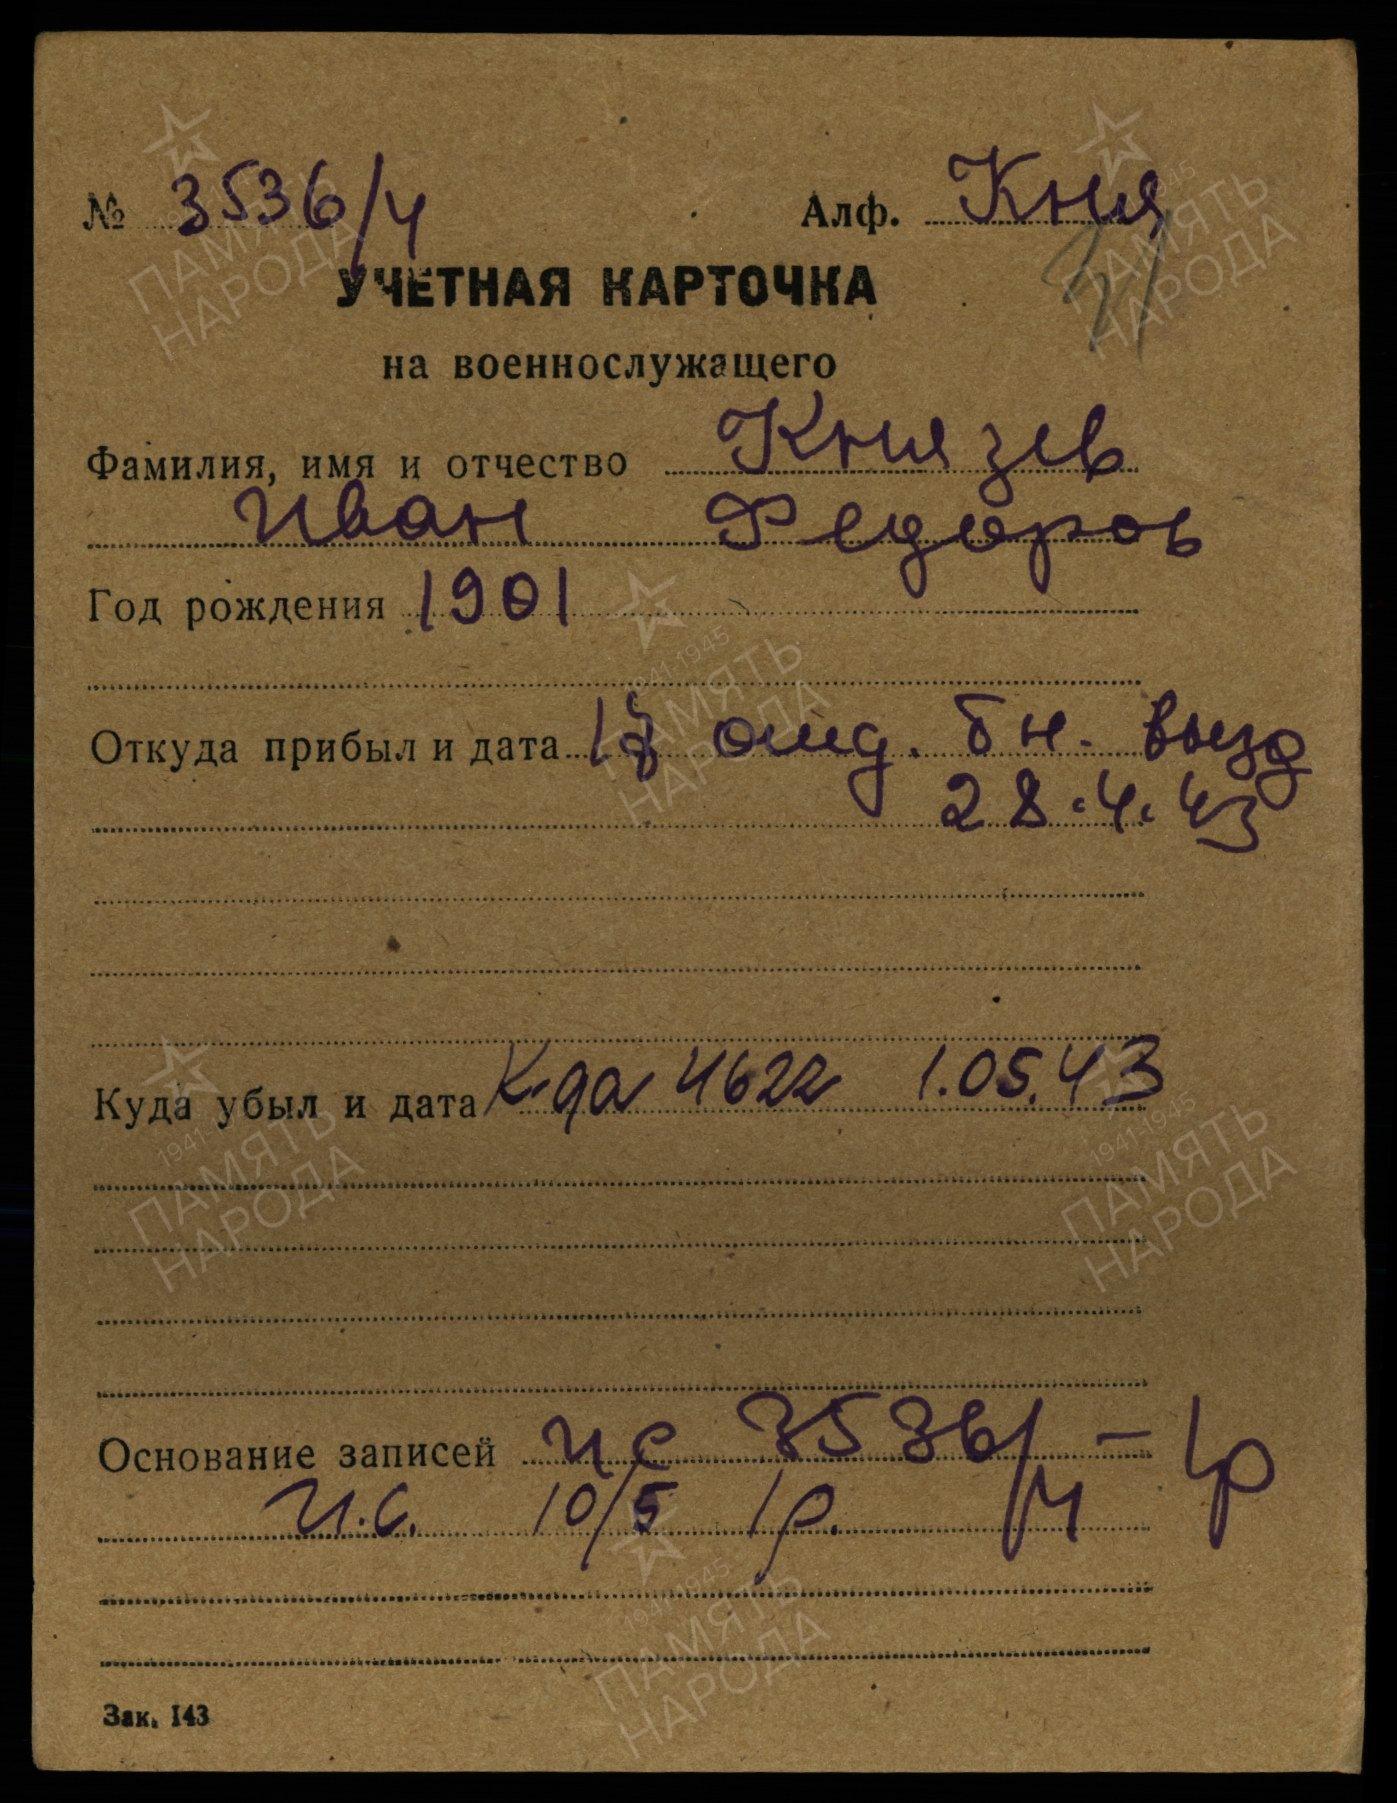 № 3536/4 Алф. Кня
УЧЕТНАЯ КАРТОЧКА
на военнослужащего
Фамилия, имя и отчество Князев
Иван Федоров
Год рождения 1901
Откуда прибыл и дата отд. бн. вызд
28.4.43
Куда убыл и дата К-да 4622 1.05.43
Основание записей ис 3536/4 – 1р
И.С. 10/5 1р.
Зак. 143
1941-1945
ПАМЯТЬ
НАРОДА